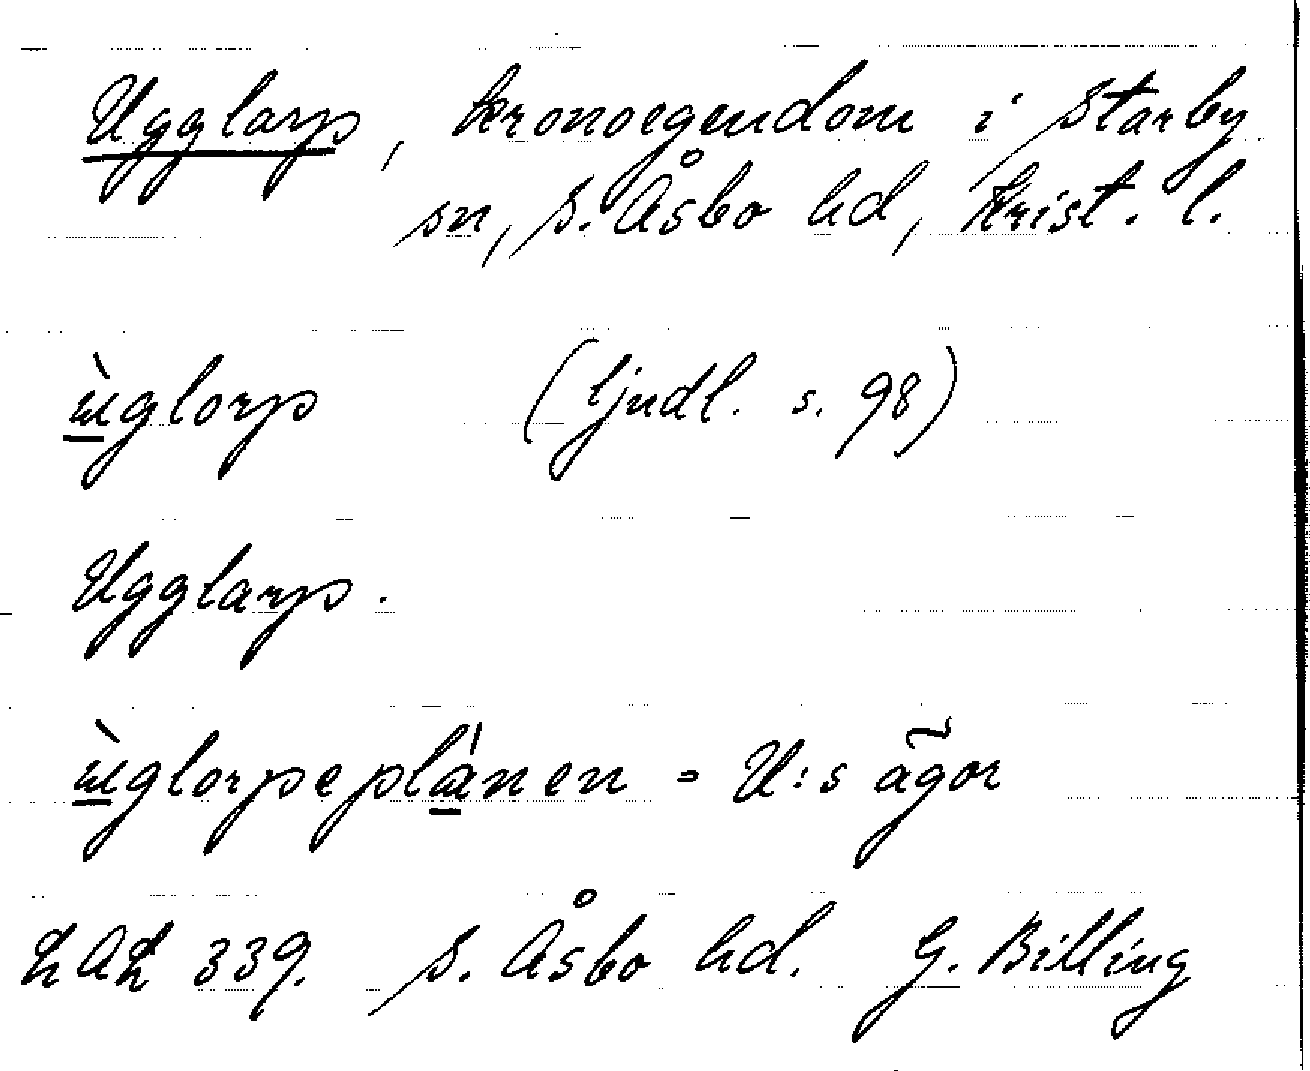 Ugglarp, kronoegendom i Starby
sn, S. Åsbo hd, Krist. l.
ùglorp (ljudl. s. 98)
Ugglarp.
ùglorpeplánen = U:s ägor
LAL 339. S. Åsbo hd. G. Billing